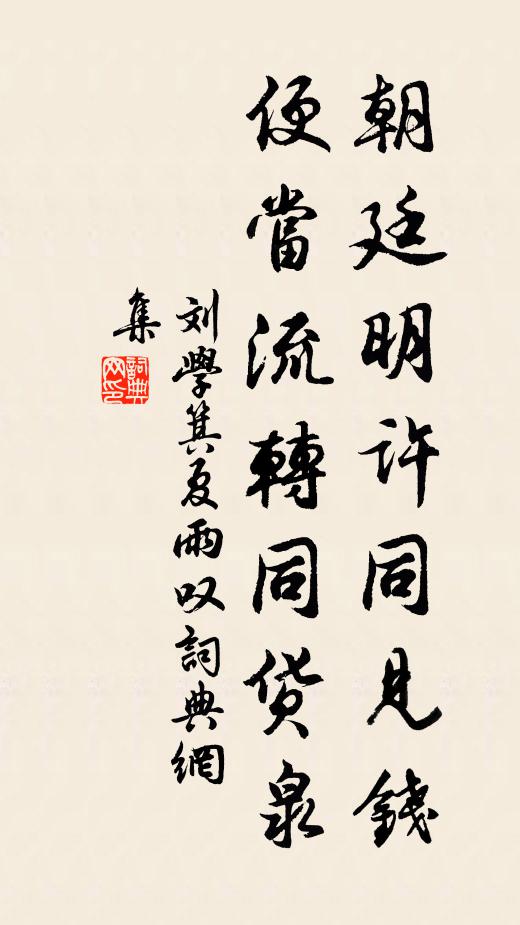 朝廷明許同見錢
便當流轉同貨泉
刘學箕夏雨叹詞典網
集
詞典网印